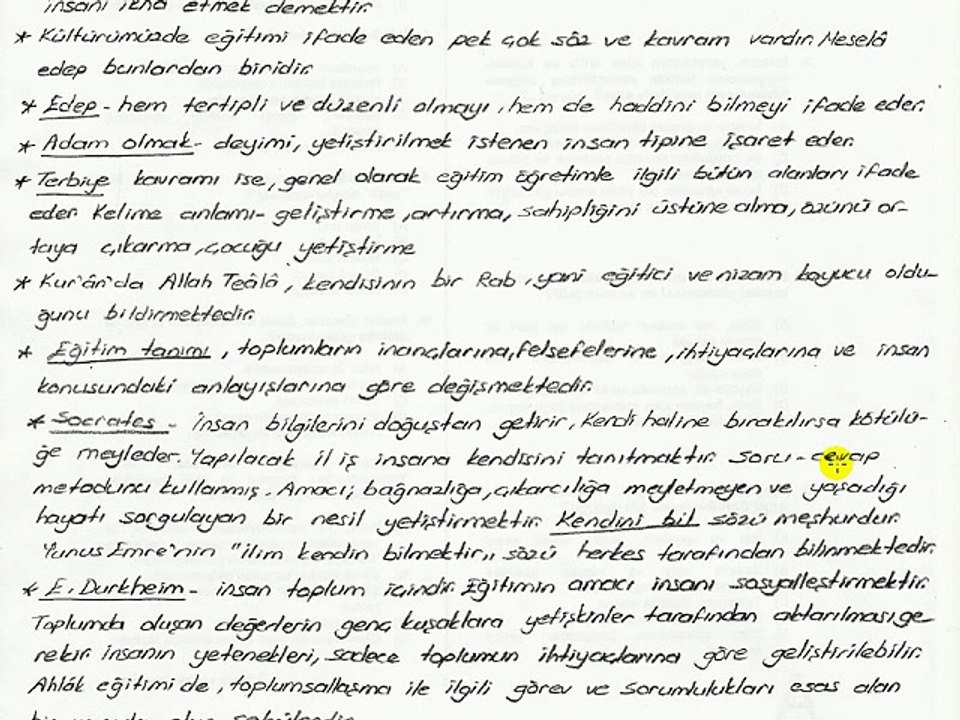 insanı ikna etmek demektir.
* Kültürümüzde eğitimi ifade eden pek çok söz ve kavram vardır. Meselâ
edep bunlardan biridir.
* Edep - hem tertipli ve düzenli olmayı, hem de haddini bilmeyi ifade eder.
* Adam olmak - deyimi, yetiştirilmek istenen insan tipine işaret eder.
* Terbiye kavramı ise, genel olarak eğitim öğretimle ilgili bütün alanları ifade
eder. Kelime anlamı - geliştirme, artırma, sahipliğini üstüne alma, özünü or-
taya çıkarma, çocuğu yetiştirme
* Kur'ân'da Allah Teâlâ, kendisinin bir Rab, yani eğitici ve nizam koyucu oldu-
ğunu bildirmektedir.
* Eğitim tanımı, toplumların inançlarına, felsefelerine, ihtiyaçlarına ve insan
konusundaki anlayışlarına göre değişmektedir.
* Socrates - İnsan bilgilerini doğuştan getirir, Kendi haline bırakılırsa kötülü-
ğe meyleder. Yapılacak il iş insana kendisini tanıtmaktır. Soru - cevap
metodunu kullanmış. Amacı; bağnazlığa, çıkarcılığa meyletmeyen ve yaşadığı
hayatı sorgulayan bir nesil yetiştirmektir. Kendini bil sözü meşhurdur.
Yunus Emre'nin "ilim kendin bilmektir,, sözü herkes tarafından bilinmektedir.
* E. Durkheim - insan toplum içindir. Eğitimin amacı insanı sosyalleştirmektir.
Toplumda oluşan değerlerin genç kuşaklara yetişkinler tarafından aktarılması ge-
rekir. İnsanın yetenekleri, sadece toplumun ihtiyaçlarına göre geliştirilebilir.
Ahlâk eğitimi de, toplumsallaşma ile ilgili görev ve sorumlulukları esas alan